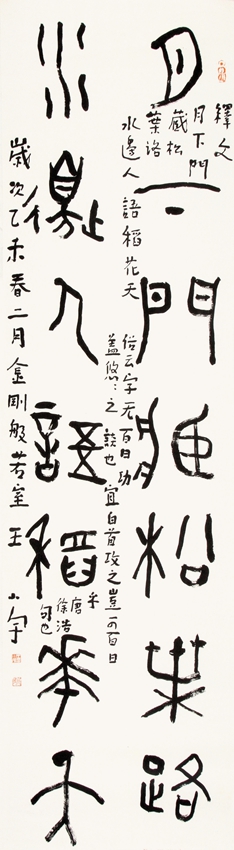 月下門藏松葉路
釋文
月下門
藏松
葉路
水邊人語稻花天
俗云字无百日功
蓋悠〻之談也宜白首攻之豈可百日
乎
唐
徐浩
句也
水邊人語稻華天
歲次乙未春二月金剛般若室王小宇